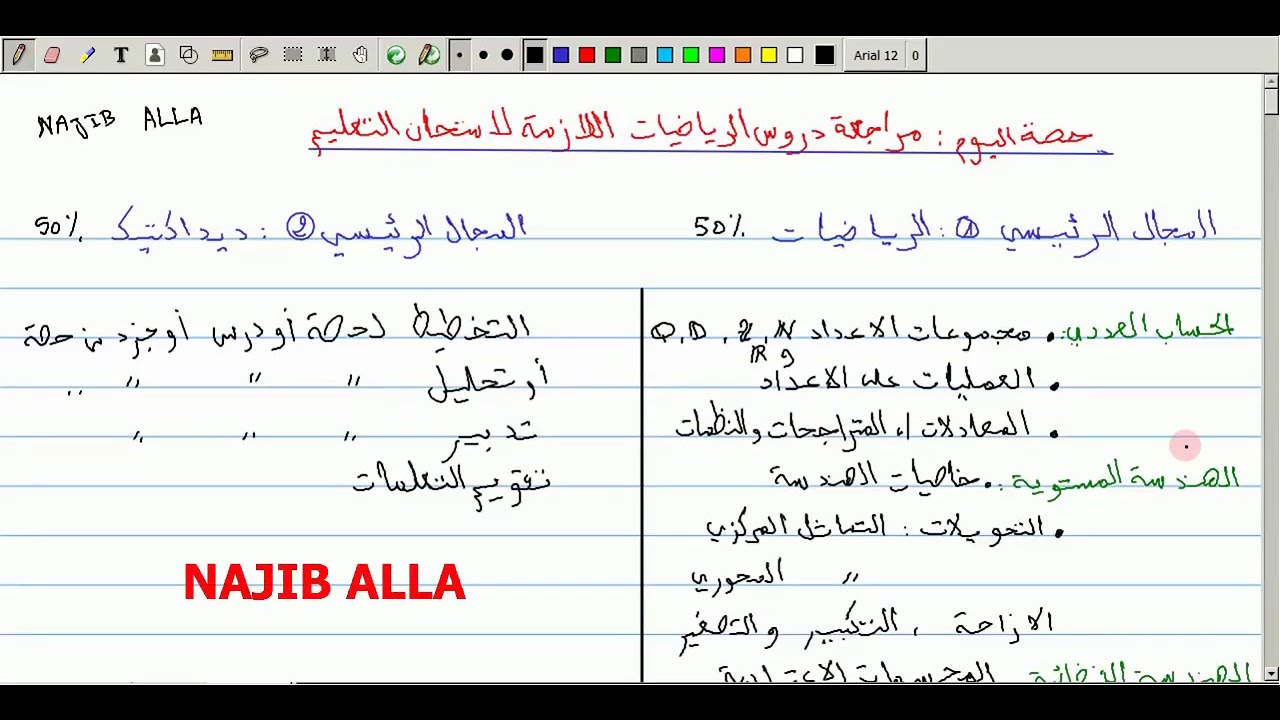 Arial 12
0
NAJIB ALLA
حصة اليوم : مراجعة دروس الرياضيات اللازمة لامتحان التعليم
المجال الرئيسي ① : الرياضيات 50%
الحساب العددي : • مجموعات الاعداد N ,Z ,D ,Q
و R
• العمليات على الاعداد
• المعادلات ، المتراجحات والنظمات
الهندسة المستوية : • خاصيات الهندسة
• التحويلات : التماثل المركزي
" المحوري
الازاحة ، التكبير والتصغير
الهندسة الفضائية المجسمات الاعتيادية
المجال الرئيسي ② : ديداكتيك 50%
التخطيط لحصة أو درس أو جزء من حصة
أو تحليل " " " "
تدبير " " "
تقويم التعلمات
NAJIB ALLA